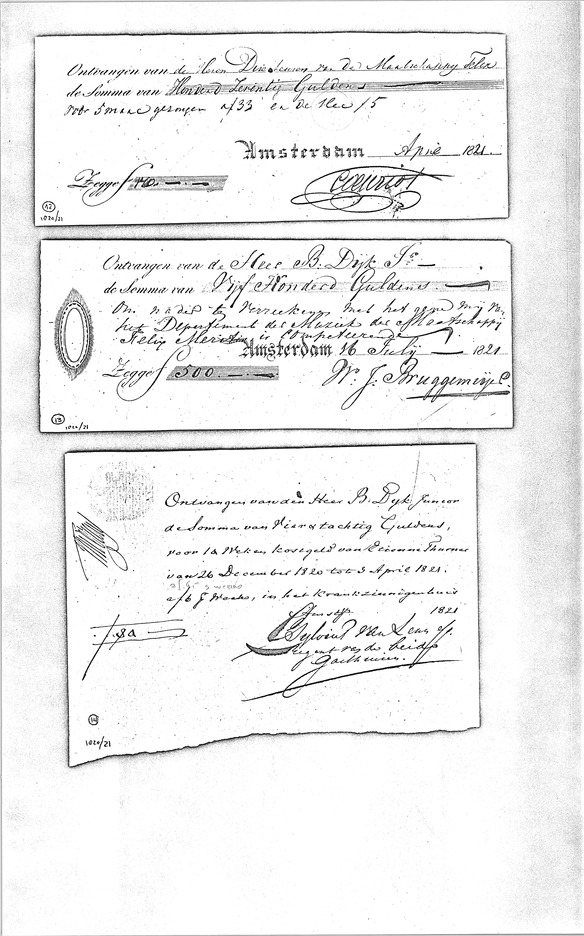 Ontvangen van de Heren Directeuren van de Maatschappy Felix
de Somma van Honderd Zeventig Guldens
voor 5 maal gezongen a ƒ33 en de Reis ƒ5
Amsterdam April 1821.
Zegge ƒ 170.—.—
12
1820/21
Ontvangen van de Heer B: Dyk Jr
de Somma van Vyf Honderd Guldens.
Om nader te Verreekenen met het geene my van
het Departement der Muziek der Maatschappy
Felix Meritis is Competeerende
Amsterdam 16 July 1821
Zegge ƒ 500.—.—
W. J. Bruggemeyer.
13
1820/21
Ontvangen van den Heer B. Dyk Junior
de Somma van Vier & tachtig Guldens,
voor 14 Weken kostgeld van Etienne Thurner
van 26 December 1820 tot 3 April 1821.
a ƒ6 's Weeks, in het krankzinnigenhuis
1821
Sylvius van Lenn
Regent van de beide
Gasthuizen.
ƒ84
14
1820/21